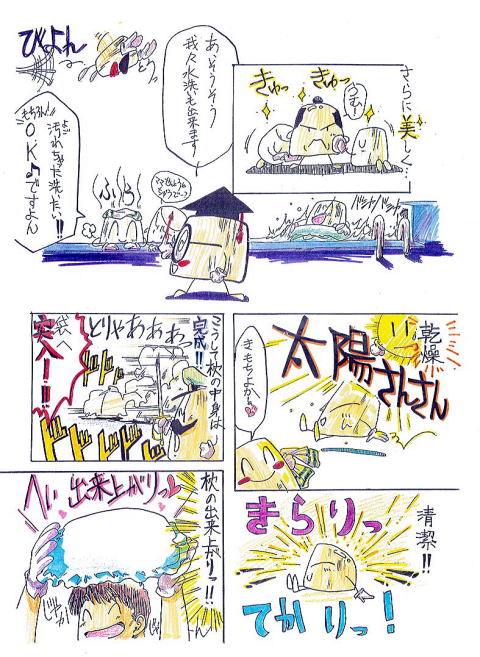 さらに美しく…
きゅっ
きゅっ
うむー
あ、そうそう
我々水洗いも出来ます
びよん
とう
もちろん!!
汚れちゃた洗いたい!!
OK♪ですよん
ふぅ
バシャバシャ
乾燥
太陽さんさん
きもちよか〜
清潔!!
きらりっ
てかりっ!
こうして枕の中身は
完成!!
どりゃあああっ
ドドド
ドドドド
袋へ
突入!!
枕の出来上がりっ!!
へい出来上がりっ
じゃ
じゃ
ーん